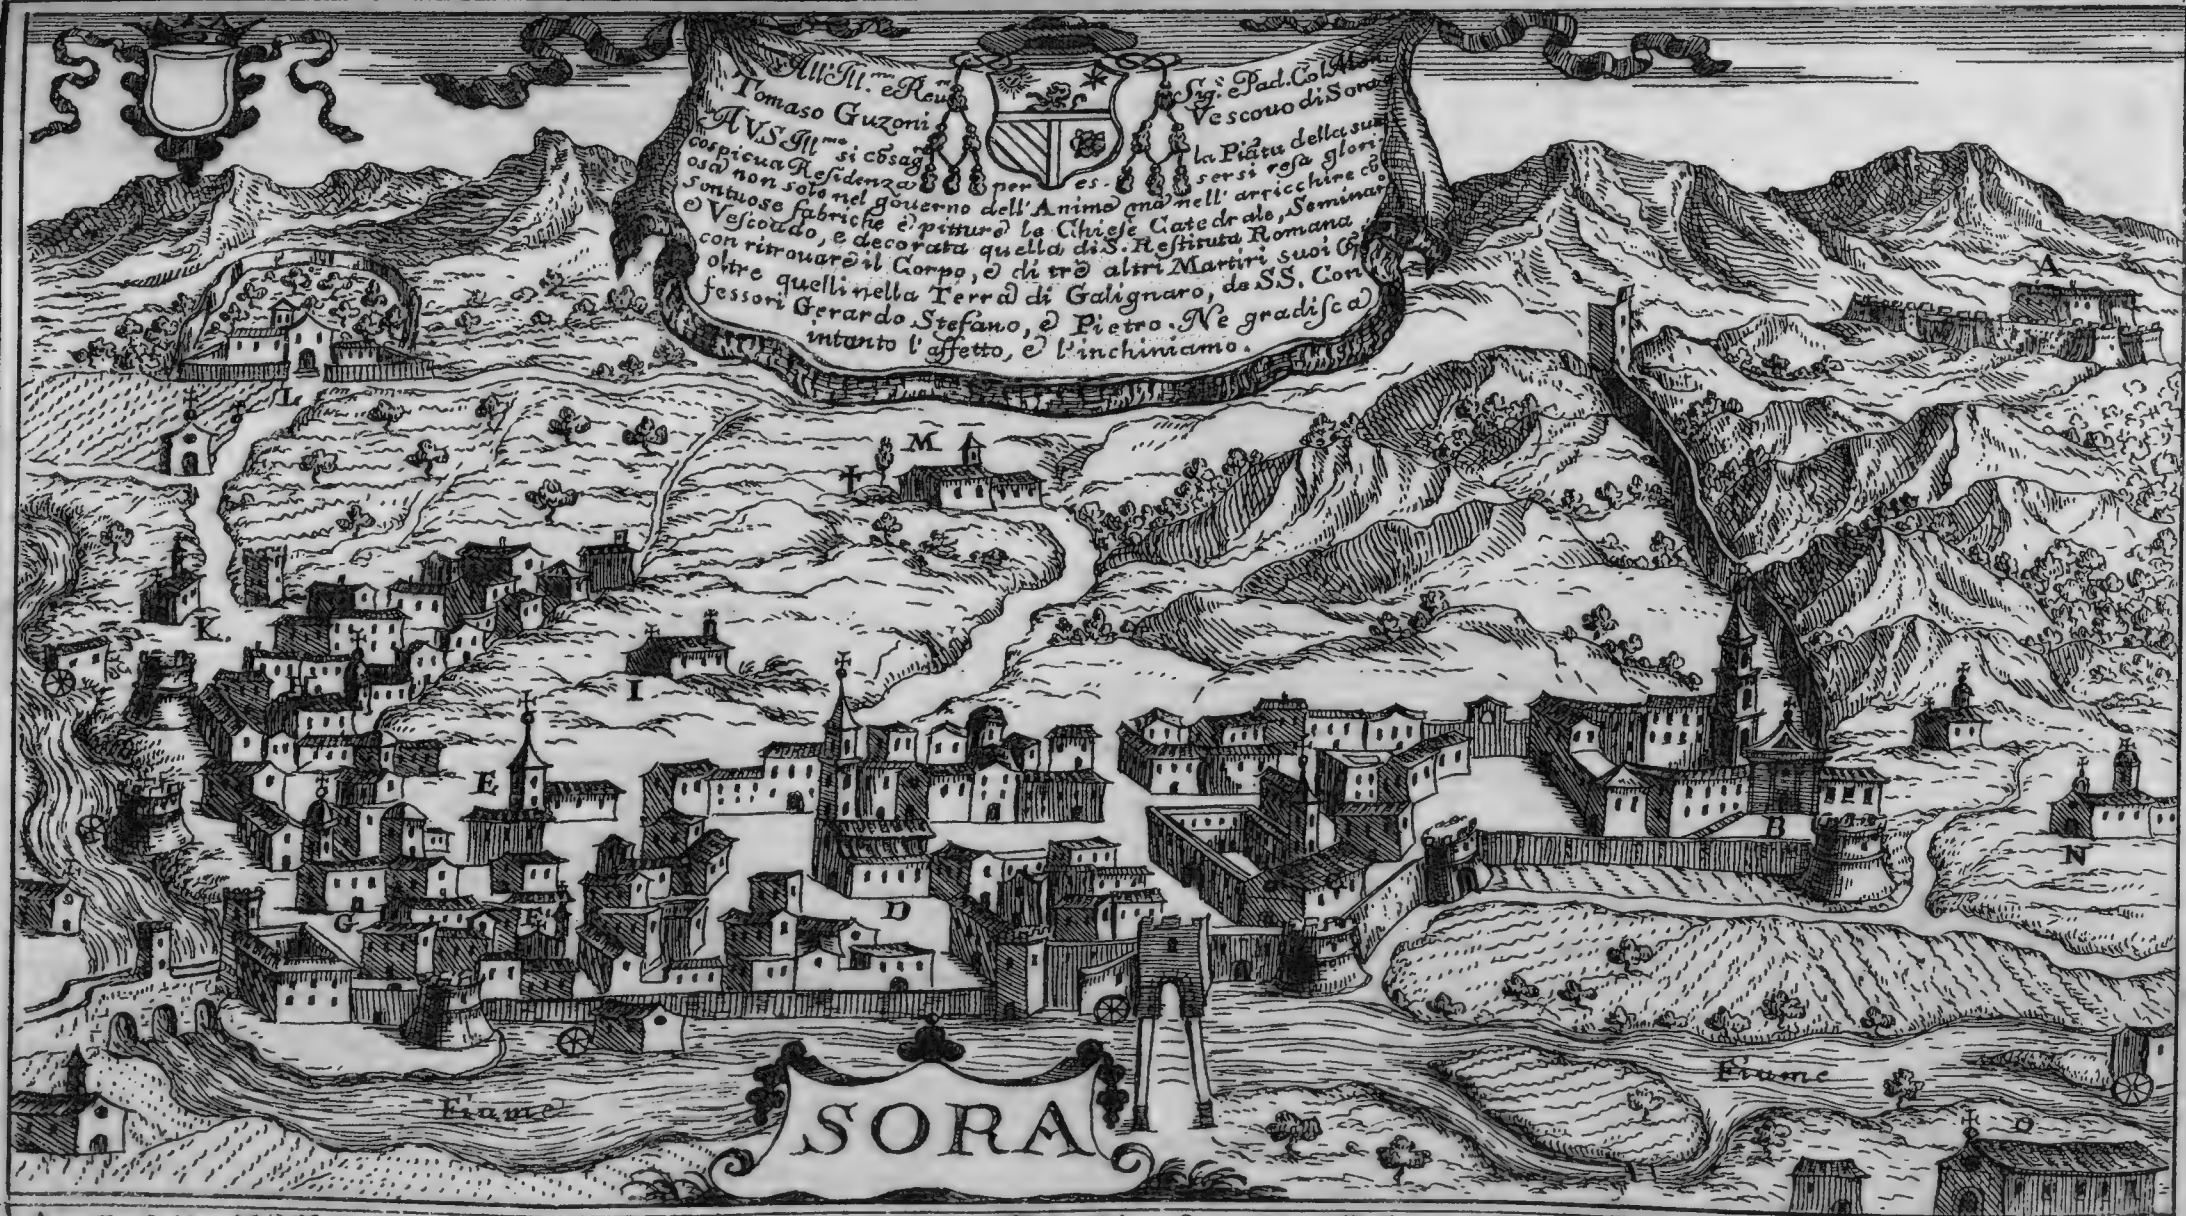 All'Ill.mo e Reu.mo Sig.e e Pad. Col. Mon.
Tomaso Guzoni Vescouo di Sora
A V.S. Ill.ma si cōsag.a la Piāta della sua
cospicua Residenza per es- sersi resa glori-
osa non solo nel gouerno dell'Anime mà nell' arricchire cō
sontuose fabriche e pitture le Chiese Catedrale, Seminar.o
e Vescouado, e decorata quella di S. Restituta Romana
con ritrouare il Corpo, e di trè altri Martiri suoi
oltre quelli nella Terra di Galignaro, de SS. Con-
fessori Gerardo Stefano, e Pietro. Ne gradisca
intanto l'affetto, e l'inchiniamo.
A
L
M
K.
I
E
B
N
D
G
F
Fiume
Fiume
SORA
O